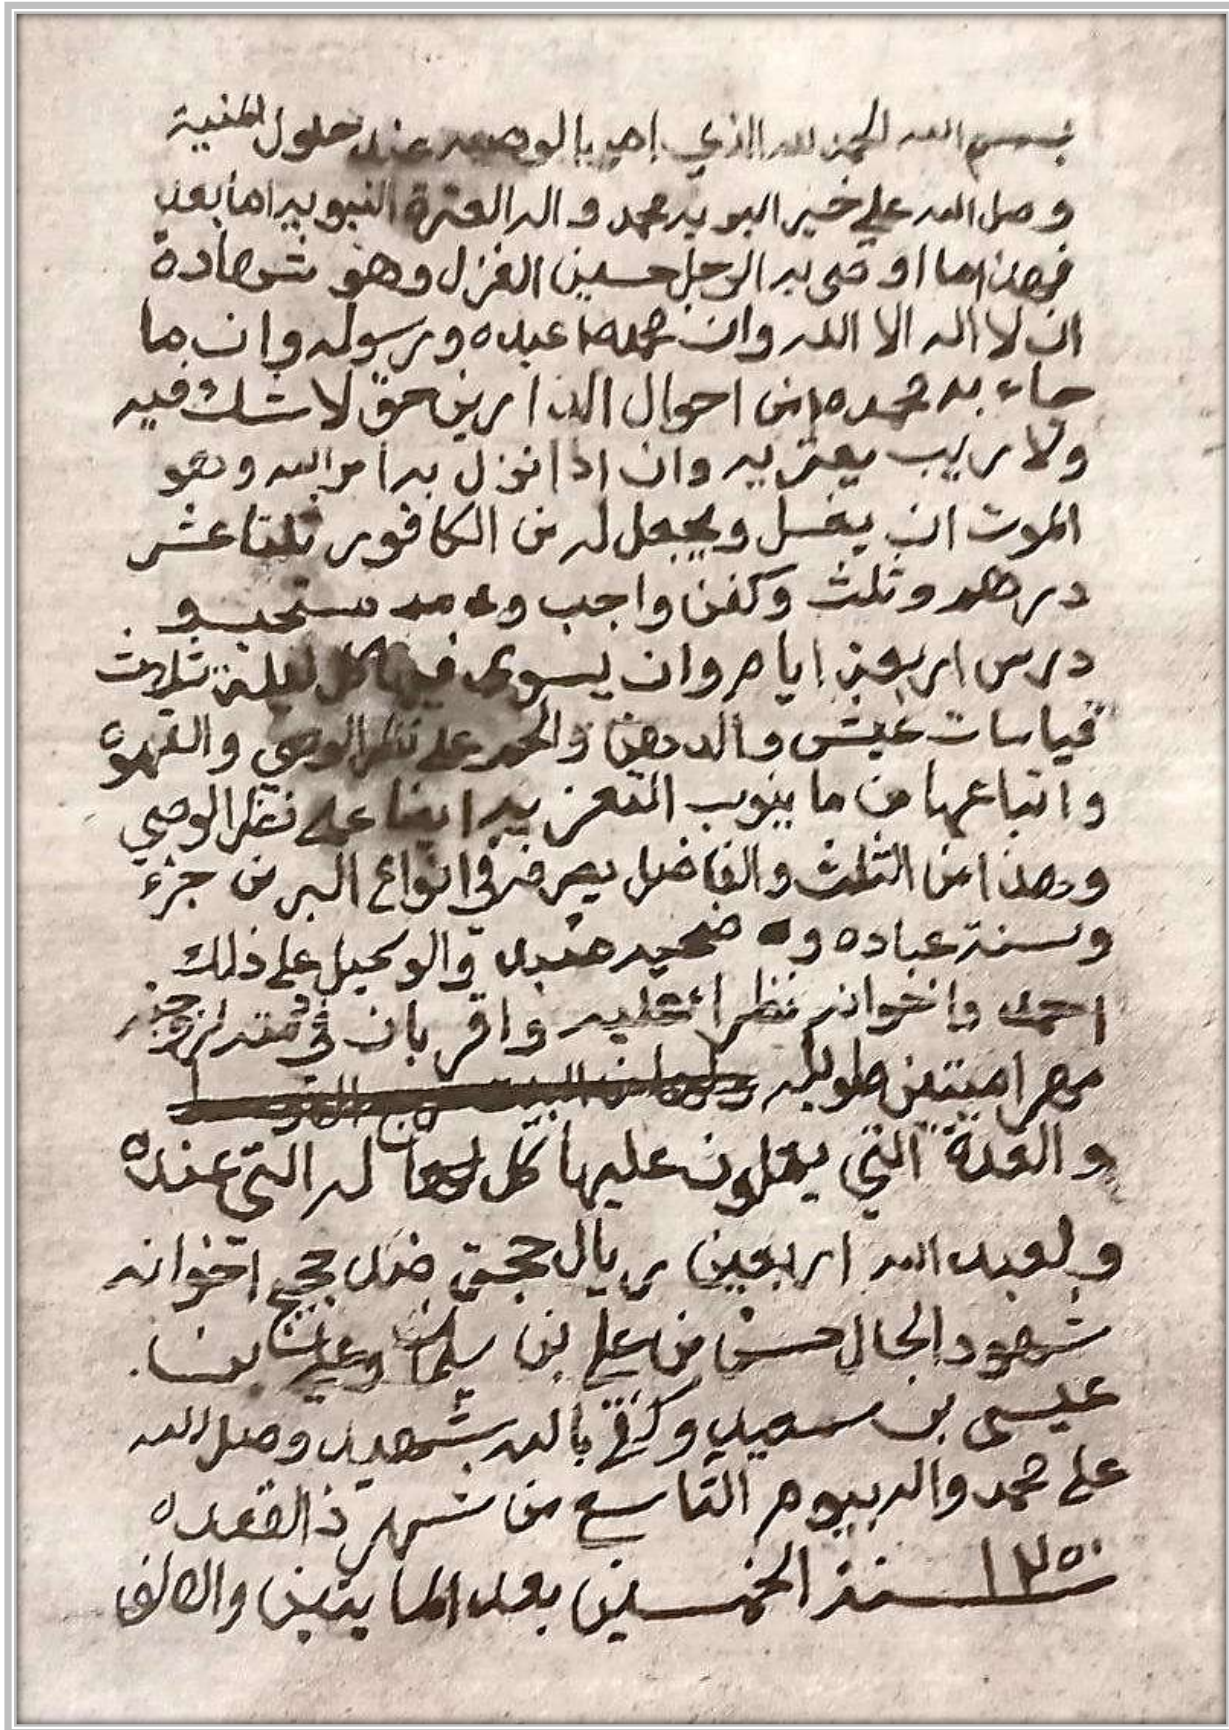 بسم الله الحمد لله الذي امر بالوصيه عند حلول المنية
وصل الله على خير البريه محمد واله العترة النبويه اما بعد
فهذا ما اوصى به الرجل حسين الغزل وهو شهادة
ان لا اله الا الله وان محمدا عبده ورسوله وان ما
جاء به محمد ص من احوال الدارين حق لا شك فيه
ولا ريب يعتريه وان اذا نزل به امر الله وهو
الموت ان يغسل ويجعل له من الكافور ثلثا عشر
درهم وثلث وكفن واجب و مستحب و
درس اربعين ايام وان يسوى فيها كل ليلة ثلاث
قياسات عيش والدهن والحم على نظر الوصي والقهوه
واتباعها من ما ينوب التعزيه ايضا على نظر الوصي
وهذا من الثلث والفاضل يصرف في انواع البر من جزء
وسنة عباده و ضحيه والوكيل على ذلك
احمد واخوانه نظراء عليه واقر بان في ذمته لزوجته
مهرا ميتين طويله
والعدة التي يعملون عليها كل له التي عنده
ولعبد الله اربعين ريال حجتي ضد حجج اخوانه
شهود الحال حسن من علي بن سلمان
عيسى بن سعيد وكفى بالله شهيد وصل الله
على محمد واله بيوم التاسع من شهر ذ القعده
١٢٥٠ سنة الخمسين بعد المايتين والالف